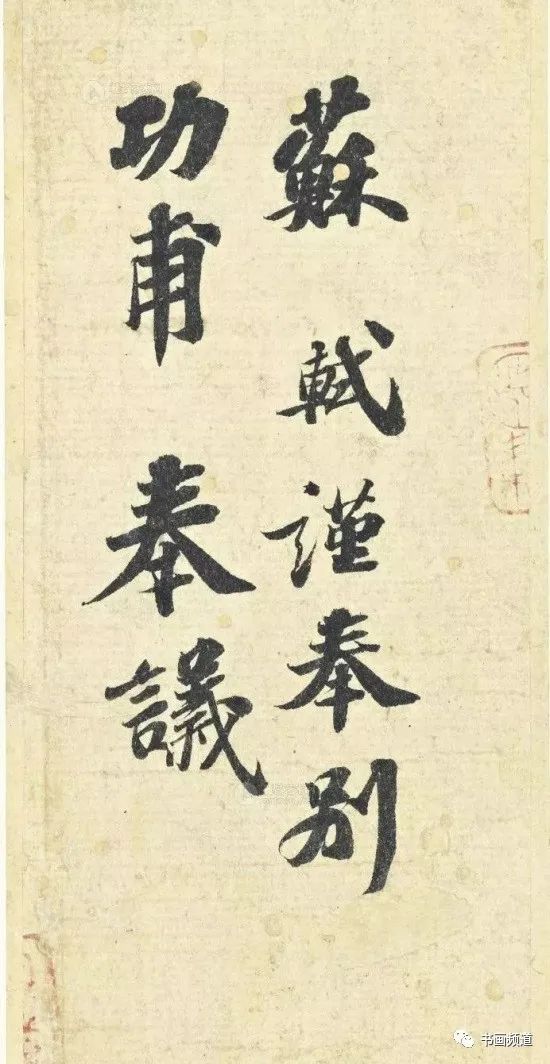 蘇軾謹奉別
功甫奉議
书画频道